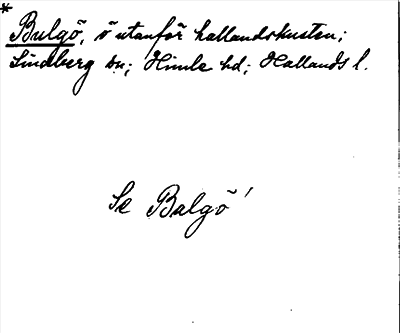 * Bulgö, ö utanför hallandskusten;
Lindberg sn; Himle hd; Hallands l.
Se Balgö'